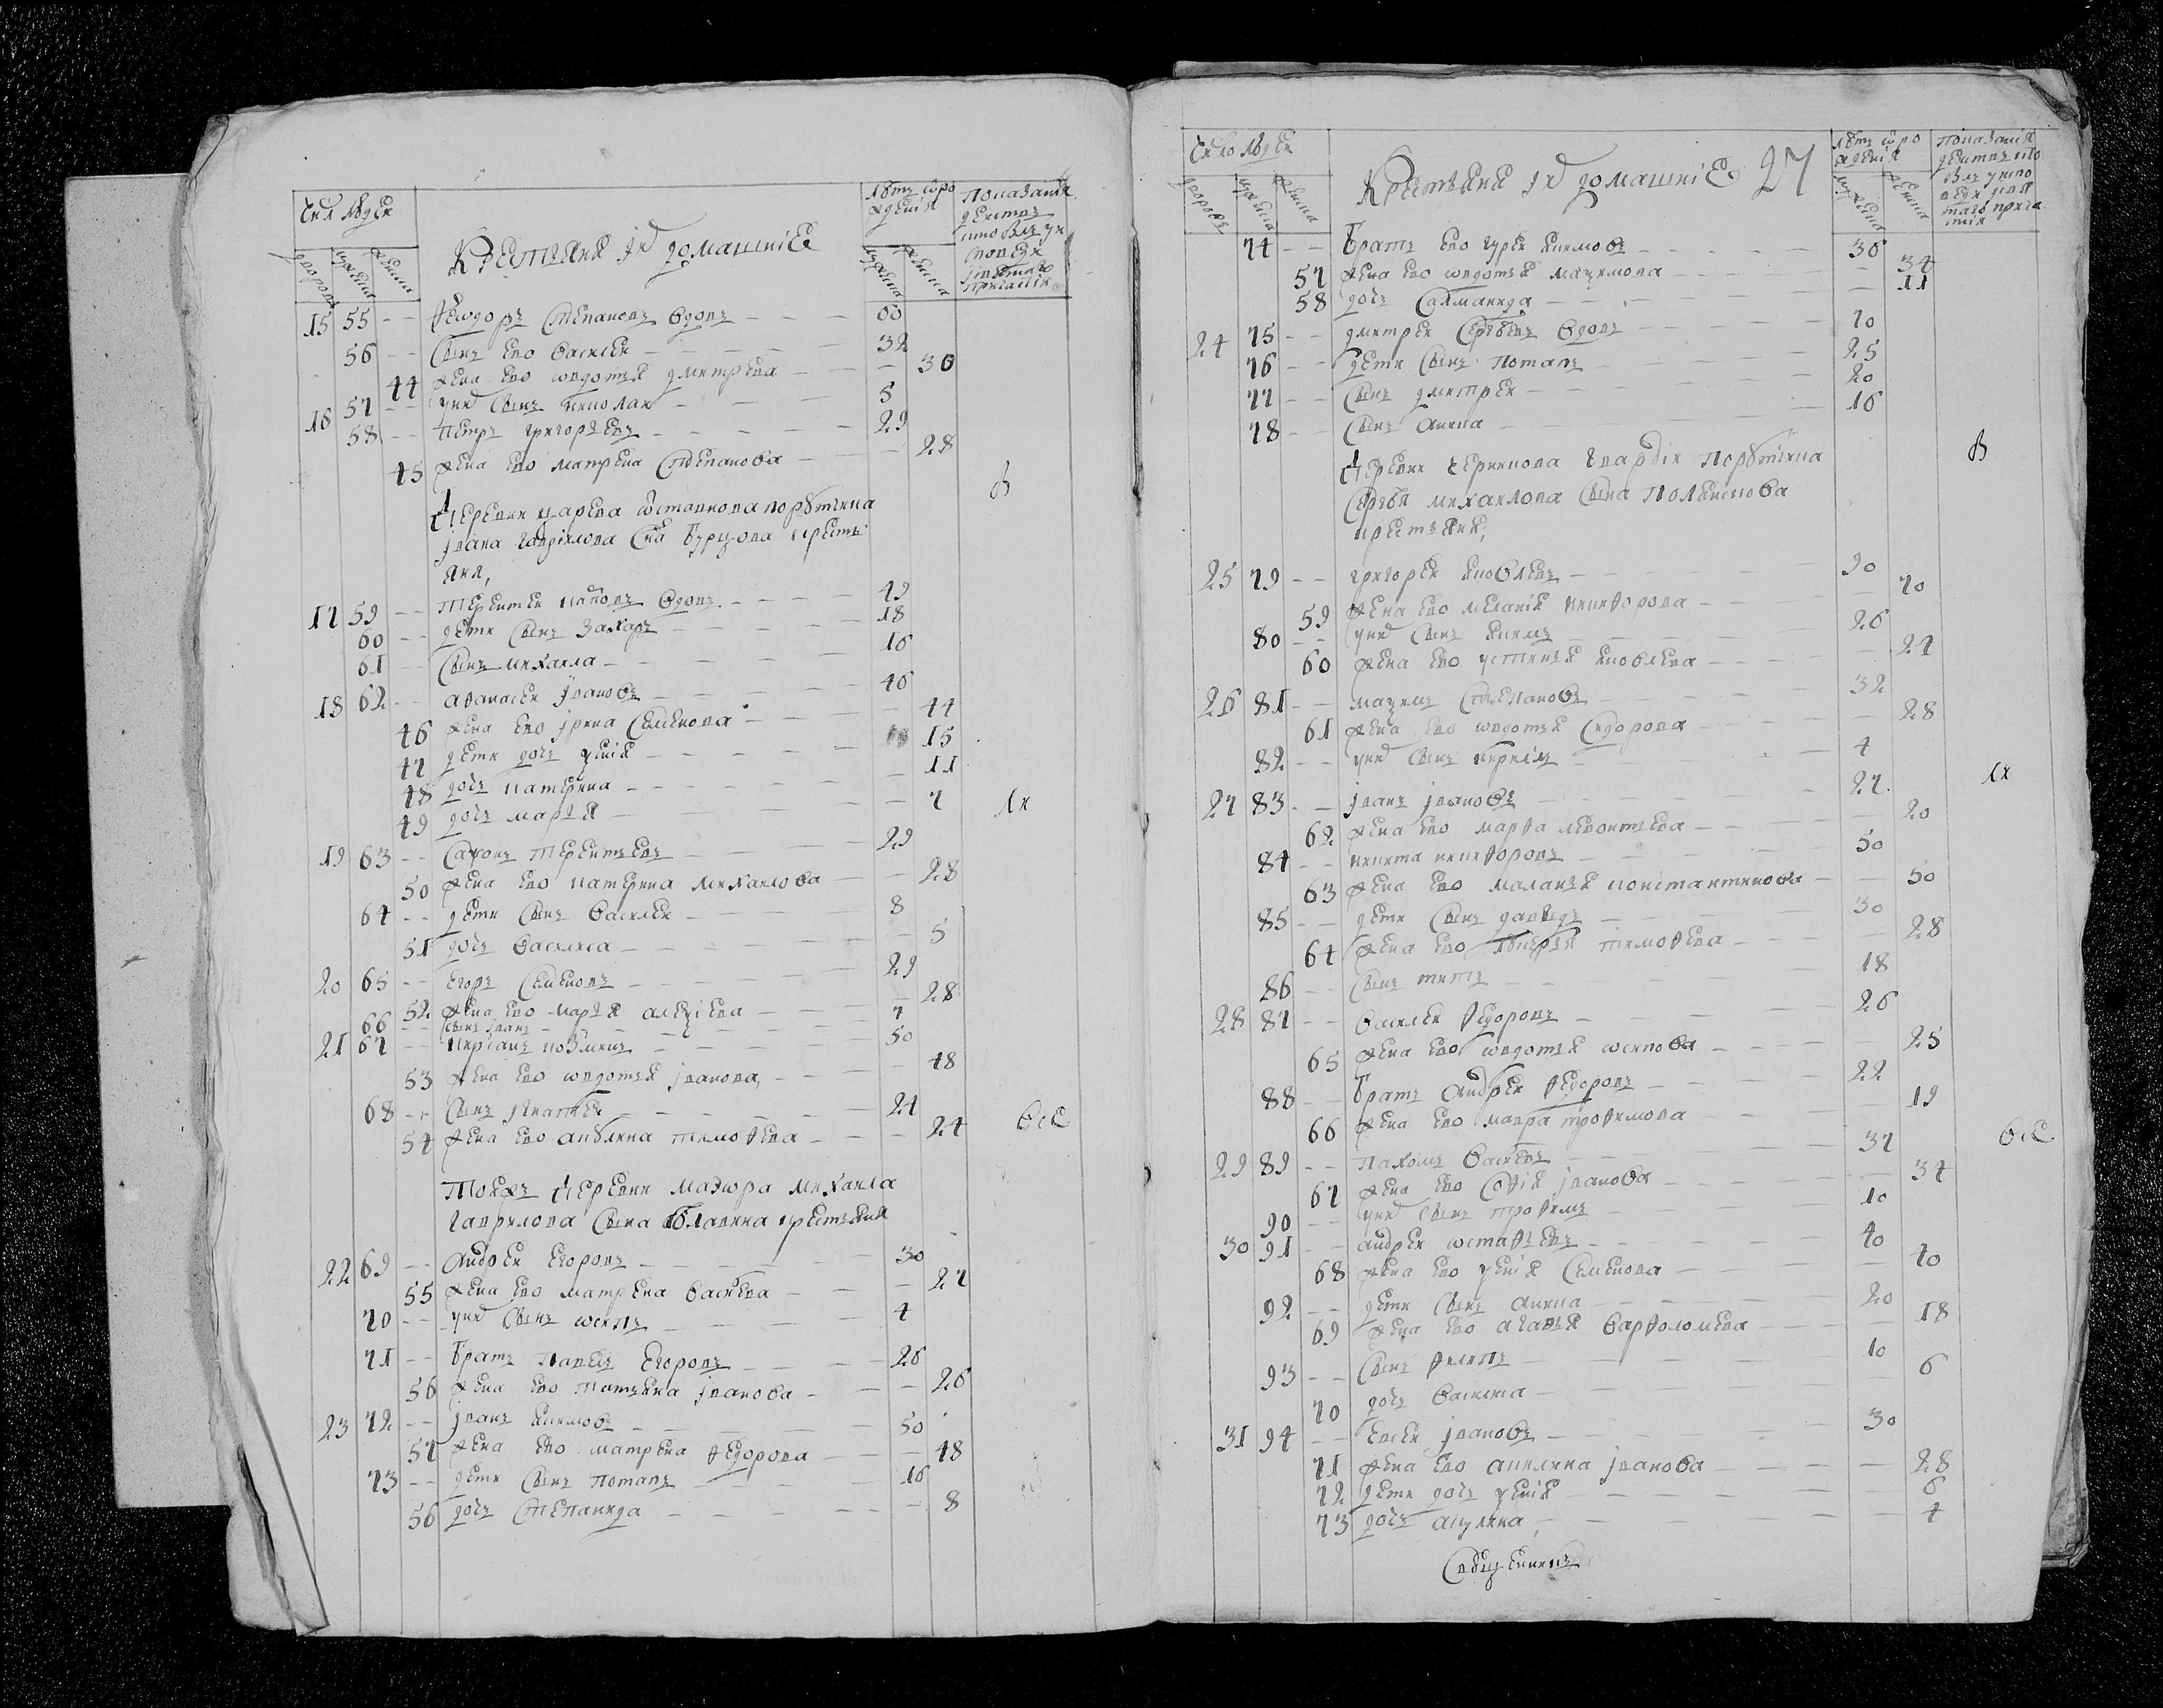 Число людей
Крестьяне и их домашние
лѣтъ ѿ рождения
дворовъ
мужеска
женска
мужеска
женска
15 55 -- Ѳеодоръ Степановъ вдовъ 60
56 -- сынъ ево Василей 32
44 жена ево Авдотья Дмитрева 30
57 -- у них сынъ Николай 5
16 58 -- Петръ Григорьевъ 29
45 жена ево Матрена Степанова 28
в
Деревни Царева Останкова порутчика
Ивана Гаврилова сна Бурцова кресть
яня,
17 59 -- Терентей Карповъ вдовъ 49
60 -- дети сынъ Захаръ 18
61 -- сынъ Михаила 16
18 62 -- Аѳанасей Ивановъ 46
46 жена ево Ирина Семенова 44
47 дети дочь Ксения 15
48 дочь Катерина 11
49 дочь Марья 7
их
19 63 -- Сафонъ Терентьевъ 29
50 жена ево Катерина Михайлова 28
64 -- дети сынъ Василей 8
51 дочь Василиса 5
20 65 -- Егоръ Семеновъ 29
52 жена ево Марья Алексиева 28
66 -- сынъ Иванъ 7
21 67 -- Кирсанъ Козминъ 50
53 жена ево Авдотья Иванова 48
68 -- сынъ Игнатей 24
54 жена ево Акулина Тимоѳева 24
все
Тоежъ деревни маэора Михаила
Гаврилова сына крестьяня
22 69 -- Андрей Егоровъ 30
55 жена ево Матрена Васильева 27
70 -- у них сынъ Осипъ 4
71 -- братъ Павелъ Егоровъ 26
56 жена ево Татьяна Иванова 26
23 72 -- Иванъ Акимовъ 50
57 жена ево Матрена Ѳедорова 48
73 -- дети сынъ Потапъ 16
56 дочь Степанида 8
Число людей
Крестьяне их домашние 27
лѣтъ ѿ ро
ждения
дворовъ
мужеска
женска
мужеска
женска
74 -- братъ ево Гурей Акимовъ 36
57 жена ево Авдотья Максимова 34
58 дочь Саламанида 11
24 75 -- Дмитрей Сергѣевъ вдовъ 70
76 -- дети сынъ Потапъ 25
77 -- сынъ Дмитрей 20
78 -- сынъ Аника 16
в
Деревни Черникова гвардии порутчика
Сергѣя Михаилова сына
крестьяня,
25 79 -- Григорей Яковлевъ 90
59 жена ево Мелания Никиѳорова 70
80 -- у них сынъ Акимъ 26
60 жена ево Устинья Яковлева 27
26 81 -- Максимъ Степановъ 32
61 жена ево Авдотья Сидорова 28
82 -- у них сынъ Кирилъ 4
27 83 -- Иванъ Ивановъ 27
их
62 жена ево Марѳа Левонтьева 20
84 -- Никита Никиѳоровъ 50
63 жена ево Маланья Константинова 50
85 -- дети сынъ Давыдъ 30
64 жена ево Лукерья Тимоѳева 28
86 -- сынъ Титъ 18
28 87 -- Василей Ѳедоровъ 26
65 жена ево Авдотья Осипова 25
88 -- братъ Андрей Ѳедоровъ 22
66 жена ево Мавра Троѳимова 19
29 89 -- Пахомъ Васильевъ 37
все
67 жена ево Соѳия Иванова 34
90 -- у них сынъ Троѳимъ 10
30 91 -- Андрей Остаѳьевъ 40
68 жена ево Ксения Семенова 40
92 -- дети сынъ Аника 20
69 жена ево Агаѳья Варѳоломева 18
93 -- сынъ Ѳилипъ 10
70 дочь Василиса 6
31 94 -- Евсей Ивановъ 30
71 жена ево Акилина Иванова 28
72 дети дочь Ксения 6
73 дочь Акулина 4
Священникъ